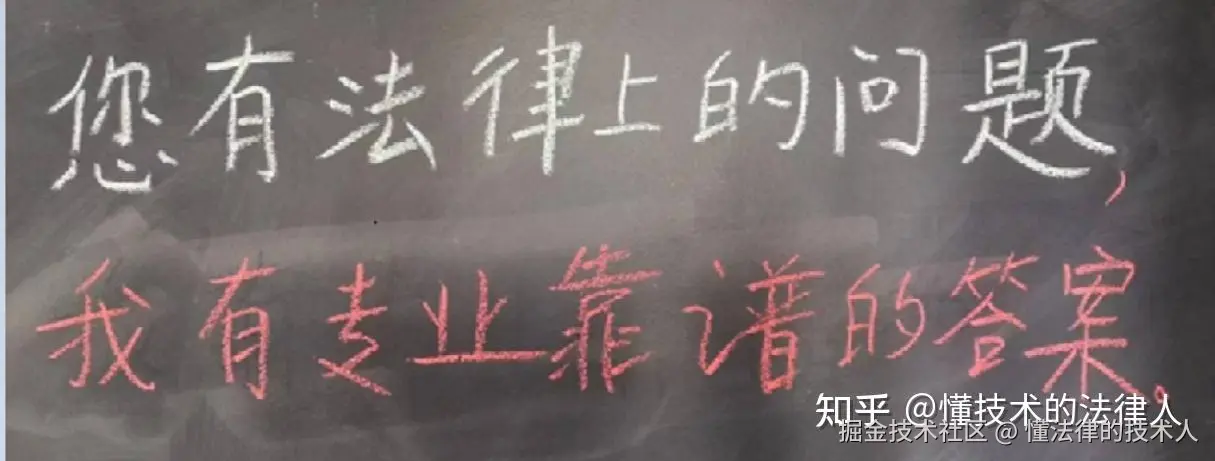 您有法律上的问题，
我有专业靠谱的答案。
知乎 @懂技术的法律人
掘金技术社区 @ 懂法律的技术人